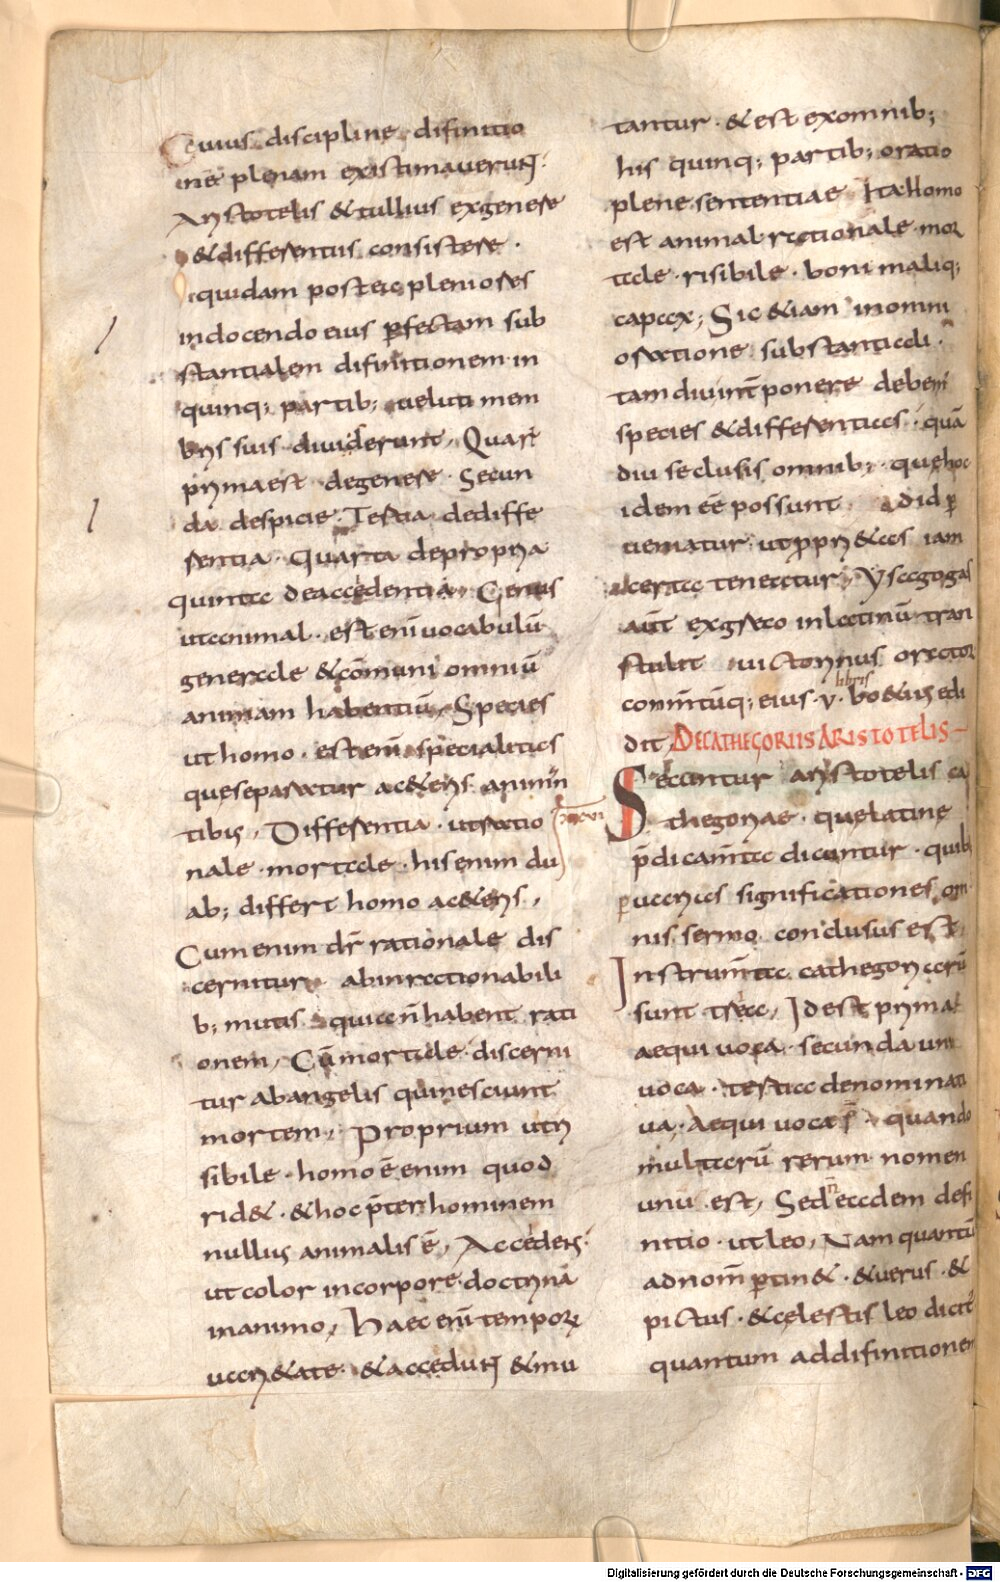 Cuius discipline difinitio
inē plenam existimaveruꞇ̄.
Aristotelis & tullius exgenere
& differentiis consistere.
quidam postea pleniores
indocendo eius ꝑfectam sub
stantialem difinitionem in
quinq; partib; veluti mem
bris suis diviḋerunt, Quar̄
prima est degenere Secun
da despicie. Tertia dediffe
rentia. Quarta depropria
quinta deaccedentia. Genus
ut animal. est enī vocabulū
generale & cōmuni omniū
animam habentiū, Species
ut homo. est enī specialitas
que separatur a c&eris animan
tibus, Differentia. ut ratio
nale. mortale. his enim du
ab; differt homo a c&eris,
Cum enim dr̄ rationale dis
cernitur ab inrationabili
b; mutis quia ñ habent rati
onem, Cū mortale discerni
tur ab angelis qui nesciunt
mortem, Proprium ut ri
sibile. homo ē enim quod
rid&. & hoc p̄ter hominem
nullus animalis ē, Accedens.
ut color in corpore doctrina
in animo, Haec enī temporꝝ
vari&ate & accedunꞇ & mu
tantur. & est ex omnib;
his quinq; partib; oratio
plene sententiae Ita Homo
est animal rationale mor
tale. risibile. boni maliq;
capax; Sic &iam in omni
oratione substantiali.
tam diu int̄ponere debem̄
species & differentias. quā
diu seclusis omnib; que hoc
idem eē possunt ad id ꝑ
veniatur. ut ppri&as iam
certa teneatur, Ysagogas
aūt ex greco in latinū tran
stulit victorinus orator
comm̄tūq; eius. v. libris bo&ius edi
dit, DE CATHEGORIIS ARISTOTELIS
Secuntur aristotelis ca
thegoriae. que latine
p̄dicam̄ta dicuntur. quib;
ꝑ varias significationes om
nis sermo conclusus est,
Instrum̄ta cathegoriarū
sunt trea, Id est prima
aequivoca. secunda uni
voca. tertia denominati
va, Aequivoca s̄. quando
multarū rerum nomen
unū est, Sed ñ eadem defi
nitio. ut leo, Nam quantū
ad nom̄ ꝑtin&. & verus. &
pictus. & celestis leo dicit̄
quantum ad difinitionem